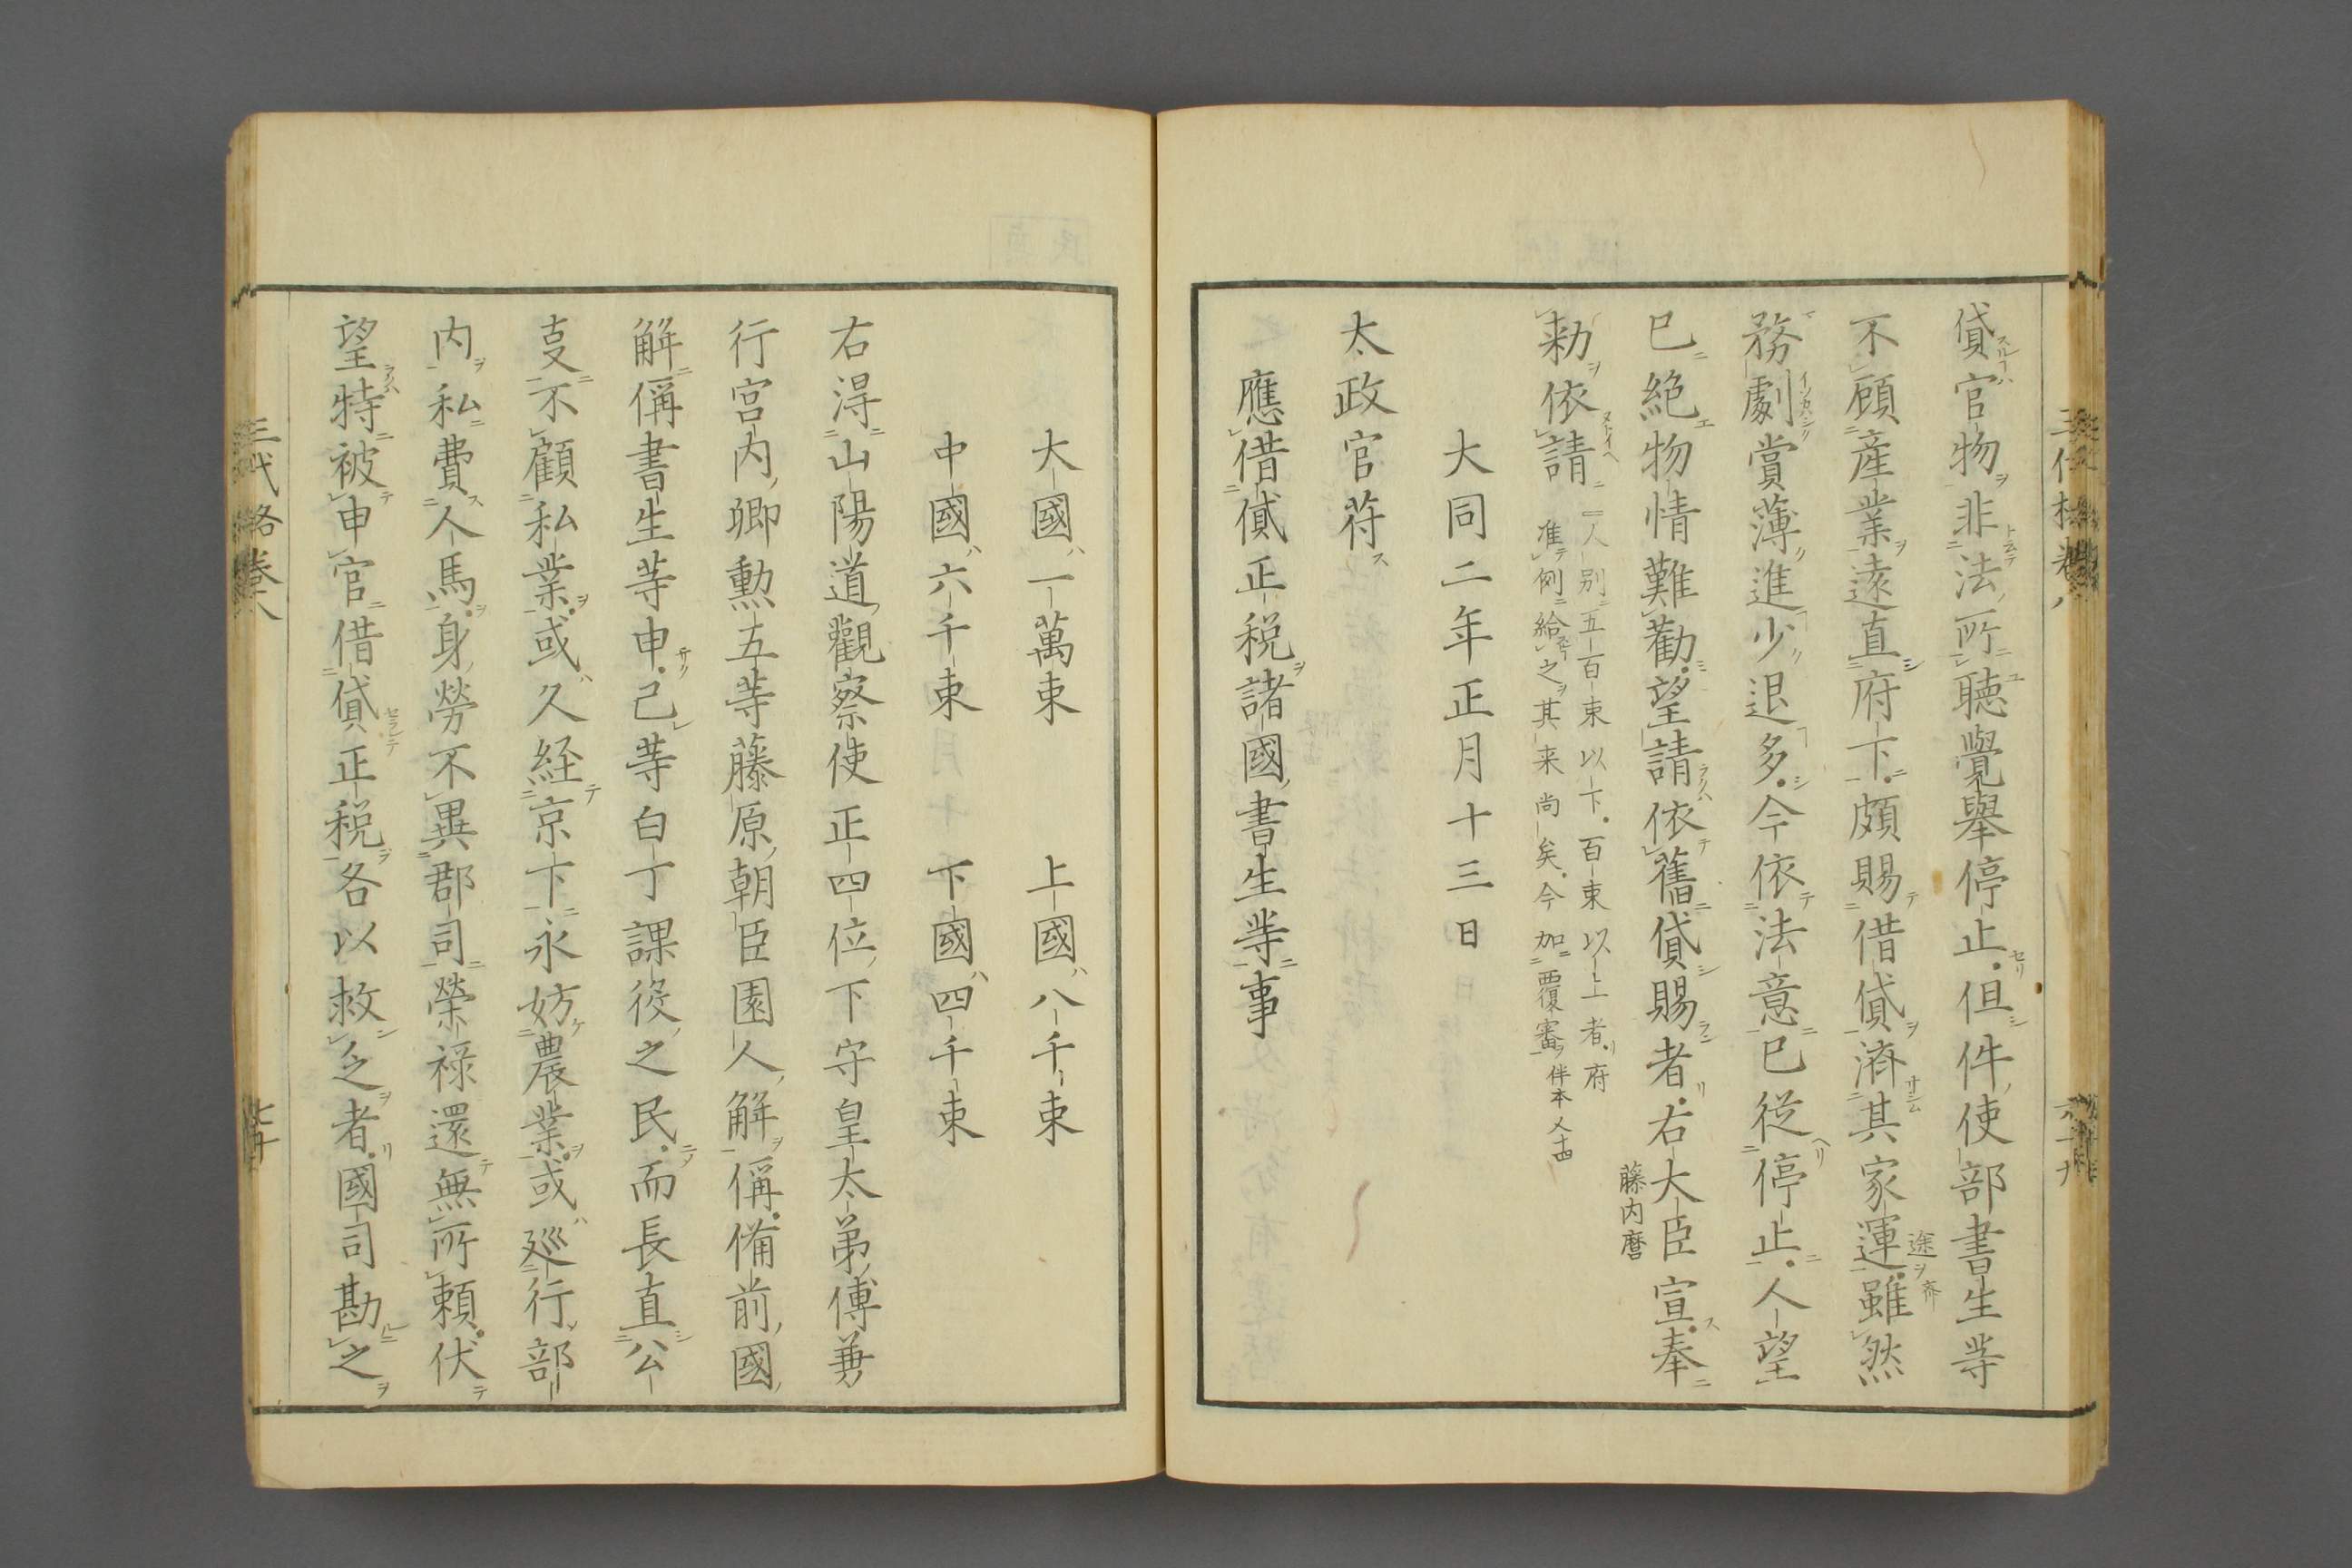 貸官物非法所聴覺舉停止但件使部書生等
不顧産業遠直府下頗賜借貸済其家運雖然
務劇賞薄進少退多今依法意已從停止人望
已絶物情難勸望請依舊貸賜者右大臣宣奉
藤内麿
勅依請
一人別五百束以下百束以上者府
准例給之其来尚矣今加覆審
大同二年正月十三日
太政官符
應借貸正税諸國書生等事
大國一萬束 上國八千束
中國六千束 下國四千束
右得山陽道觀察使正四位下守皇太弟傅兼
行宮内卿勲五等藤原朝臣園人解偁備前國
解偁書生等申己等白丁課役之民而長直公
事不顧私業或久経京下永妨農業或廵行部
内私費人馬身勞不異郡司榮禄還無所頼伏
望特被申官借貸正税各以救乏者國司勘之
三代格巻八
七十